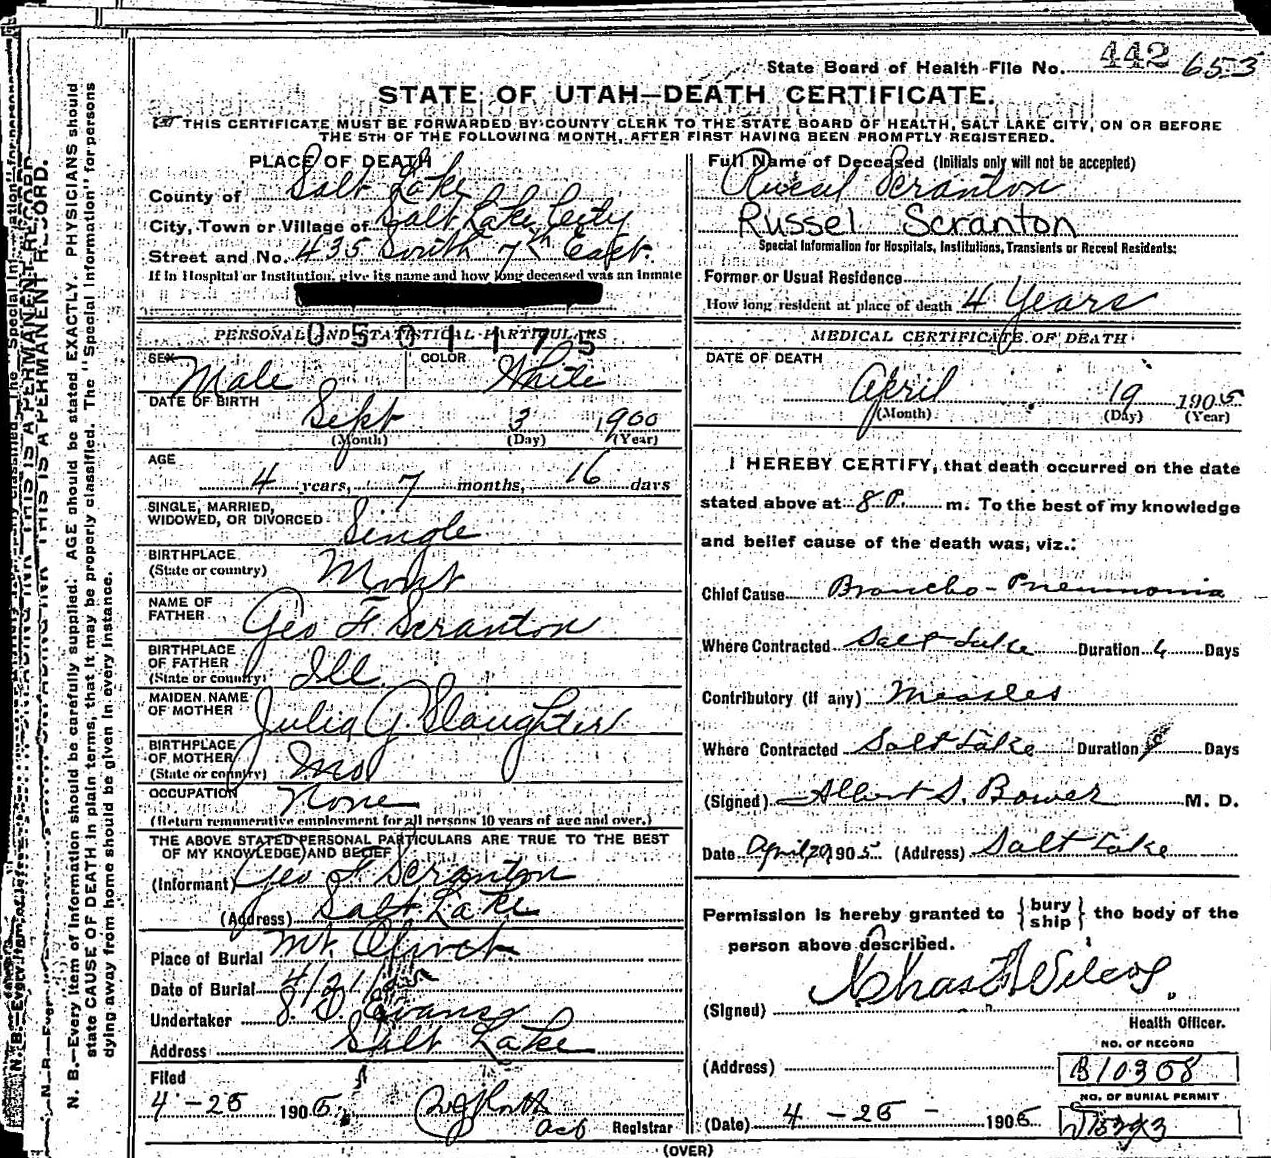 State Board of Health File No. 442 653
STATE OF UTAH—DEATH CERTIFICATE.
THIS CERTIFICATE MUST BE FORWARDED BY COUNTY CLERK TO THE STATE BOARD OF HEALTH, SALT LAKE CITY, ON OR BEFORE
THE 5TH OF THE FOLLOWING MONTH, AFTER FIRST HAVING BEEN PROMPTLY REGISTERED.
PLACE OF DEATH
County of Salt Lake
City, Town or Village of Salt Lake City
Street and No. 435 South 7th East.
If in Hospital or Institution, give its name and how long deceased was an inmate
0501175
PERSONAL AND STATISTICAL PARTICULARS
SEX Male COLOR White
DATE OF BIRTH
Sept 3 1900
(Month) (Day) (Year)
AGE
4 years, 7 months, 16 days
SINGLE, MARRIED,
WIDOWED, OR DIVORCED Single
BIRTHPLACE
(State or country) Mont
NAME OF
FATHER Geo F Scranton
BIRTHPLACE
OF FATHER
(State or country) Ill.
MAIDEN NAME
OF MOTHER Julia G. Slaughter
BIRTHPLACE
OF MOTHER
(State or country) Mo
OCCUPATION None
(Return remunerative employment for all persons 10 years of age and over.)
THE ABOVE STATED PERSONAL PARTICULARS ARE TRUE TO THE BEST
OF MY KNOWLEDGE AND BELIEF
(Informant) Geo F Scranton
(Address) Salt Lake
Place of Burial Mt. Olivet
Date of Burial 4/21/05
Undertaker S. D. Evans
Address Salt Lake
Filed
4-25 1905
Registrar
Full Name of Deceased (Initials only will not be accepted)
Russel Scranton
Russel Scranton
Special Information for Hospitals, Institutions, Transients or Recent Residents:
Former or Usual Residence
How long resident at place of death 4 Years
MEDICAL CERTIFICATE OF DEATH
DATE OF DEATH
April 19 1905
(Month) (Day) (Year)
I HEREBY CERTIFY, that death occurred on the date
stated above at 8 P. m. To the best of my knowledge
and belief cause of the death was, viz.:
Chief Cause Broncho-Pneumonia
Where Contracted Salt Lake Duration 4 Days
Contributory (if any) Measles
Where Contracted Salt Lake Duration Days
(Signed) Albert S. Bower M. D.
Date April 20, 1905 (Address) Salt Lake
Permission is hereby granted to {bury ship} the body of the
person above described.
(Signed)
Health Officer.
NO. OF RECORD
(Address) B10308
NO. OF BURIAL PERMIT
(Date) 4-25- 1905
(OVER)
N. B.—Every item of information should be carefully supplied. AGE should be stated EXACTLY. PHYSICIANS should
state CAUSE OF DEATH in plain terms, that it may be properly classified. The "Special Information" for persons
dying away from home should be given in every instance.
THIS IS A PERMANENT RECORD.